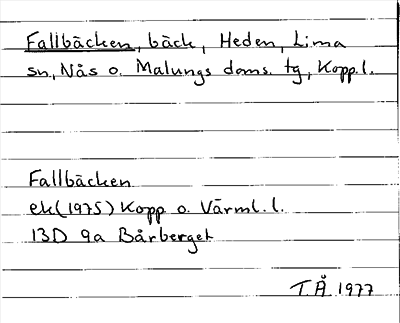 Fallbäcken, bäck, Heden, Lima
sn, Nås o. Malungs doms. tg, Kopp.l.
Fallbäcken
ek (1975) Kopp o. Värml. l.
13D 9a Bårberget
T.Å. 1977